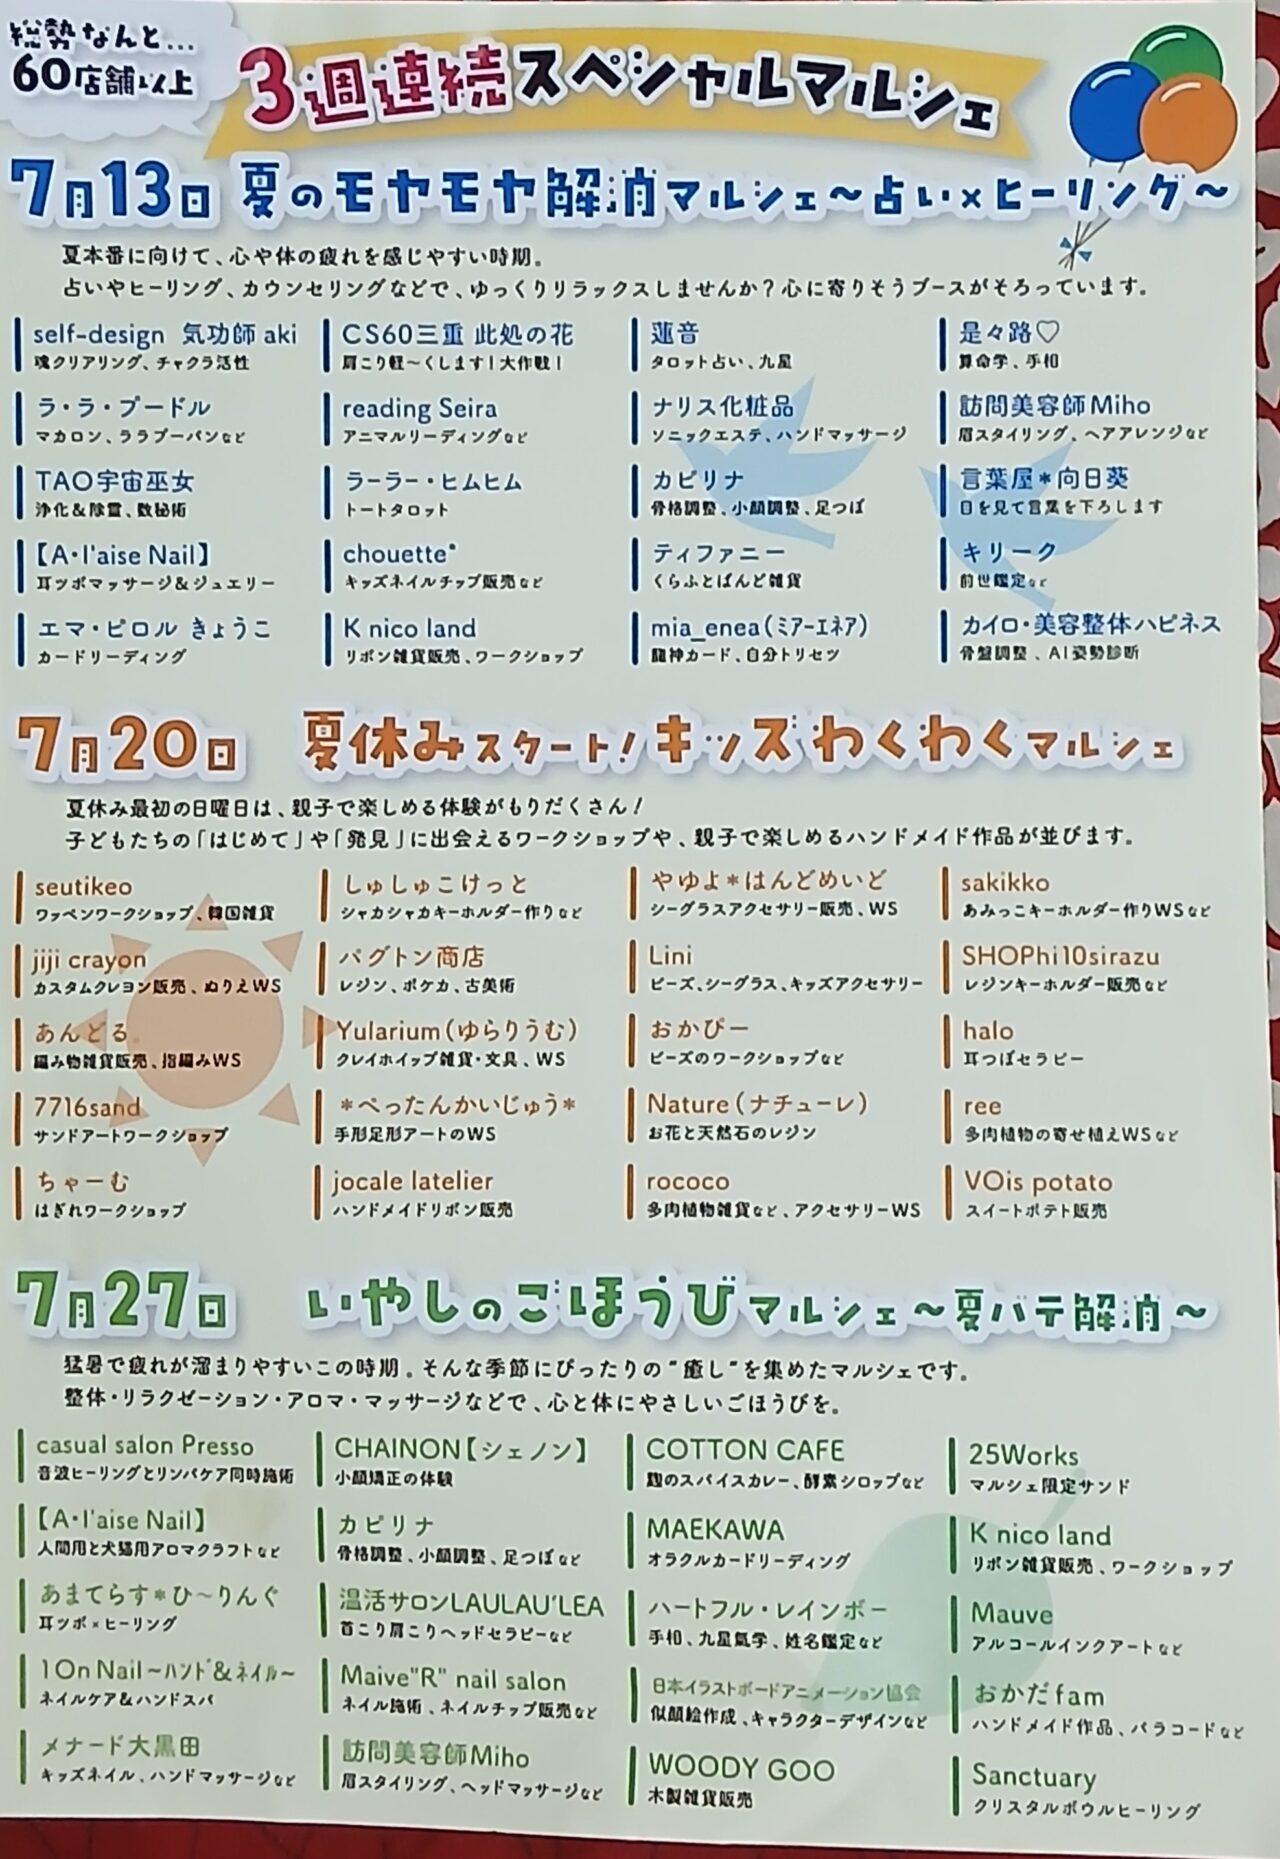 総勢なんと…
60店舗以上
3週連続スペシャルマルシェ
7月13日 夏のモヤモヤ解消マルシェ～占い×ヒーリング～
夏本番に向けて、心や体の疲れを感じやすい時期。
占いやヒーリング、カウンセリングなどで、ゆっくりリラックスしませんか？心に寄りそうブースがそろっています。
self-design 気功師 aki
魂クリアリング、チャクラ活性
CS60三重 此処の花
肩こり軽～くします！大作戦！
蓮音
タロット占い、九星
是々路♡
算命学、手相
ラ・ラ・プードル
マカロン、ララプーパンなど
reading Seira
アニマルリーディングなど
ナリス化粧品
ソニックエステ、ハンドマッサージ
訪問美容師Miho
眉スタイリング、ヘアアレンジなど
TAO宇宙巫女
浄化＆除霊、数秘術
ラーラー・ヒムヒム
トートタロット
カピリナ
骨格調整、小顔調整、足つぼ
言葉屋＊向日葵
目を見て言葉を下ろします
【A・l'aise Nail】
耳ツボマッサージ＆ジュエリー
chouette*
キッズネイルチップ販売など
ティファニー
くらふとばんど雑貨
キリーク
前世鑑定など
エマ・ピロル きょうこ
カードリーディング
K nico land
リボン雑貨販売、ワークショップ
mia_enea（ミアーエネア）
龍神カード、自分トリセツ
カイロ・美容整体ハピネス
骨盤調整、AI姿勢診断
7月20日 夏休みスタート！キッズわくわくマルシェ
夏休み最初の日曜日は、親子で楽しめる体験がもりだくさん！
子どもたちの「はじめて」や「発見」に出会えるワークショップや、親子で楽しめるハンドメイド作品が並びます。
seutikeo
ワッペンワークショップ、韓国雑貨
しゅしゅこけっと
シャカシャカキーホルダー作りなど
やゆよ＊はんどめいど
シーグラスアクセサリー販売、WS
sakikko
あみっこキーホルダー作りWSなど
jiji crayon
カスタムクレヨン販売、ぬりえWS
パグトン商店
レジン、ポケカ、古美術
Lini
ビーズ、シーグラス、キッズアクセサリー
SHOPhi10sirazu
レジンキーホルダー販売など
あんどる
編み物雑貨販売、指編みWS
Yularium（ゆらりうむ）
クレイホイップ雑貨・文具、WS
おかぴー
ビーズのワークショップなど
halo
耳つぼセラピー
7716sand
サンドアートワークショップ
＊ぺったんかいじゅう＊
手形足形アートのWS
Nature（ナチューレ）
お花と天然石のレジン
ree
多肉植物の寄せ植えWSなど
ちゃーむ
はぎれワークショップ
jocale latelier
ハンドメイドリボン販売
rococo
多肉植物雑貨など、アクセサリーWS
VOis potato
スイートポテト販売
7月27日 いやしのごほうびマルシェ～夏バテ解消～
猛暑で疲れが溜まりやすいこの時期。そんな季節にぴったりの"癒し"を集めたマルシェです。
整体・リラクゼーション・アロマ・マッサージなどで、心と体にやさしいごほうびを。
casual salon Presso
音波ヒーリングとリンパケア同時施術
CHAINON【シェノン】
小顔矯正の体験
COTTON CAFE
麹のスパイスカレー、酵素シロップなど
25Works
マルシェ限定サンド
【A・l'aise Nail】
人間用と犬猫用アロマクラフトなど
カピリナ
骨格調整、小顔調整、足つぼなど
MAEKAWA
オラクルカードリーディング
K nico land
リボン雑貨販売、ワークショップ
あまてらす＊ひ～りんぐ
耳ツボ×ヒーリング
温活サロンLAULAU'LEA
首こり肩こりヘッドセラピーなど
ハートフル・レインボー
手相、九星氣学、姓名鑑定など
Mauve
アルコールインクアートなど
1On Nail～ハンド＆ネイル～
ネイルケア＆ハンドスパ
Maive"R" nail salon
ネイル施術、ネイルチップ販売など
日本イラストボードアニメーション協会
似顔絵作成、キャラクターデザインなど
おかだfam
ハンドメイド作品、パラコードなど
メナード大黒田
キッズネイル、ハンドマッサージなど
訪問美容師Miho
眉スタイリング、ヘッドマッサージなど
WOODY GOO
木製雑貨販売
Sanctuary
クリスタルボウルヒーリング